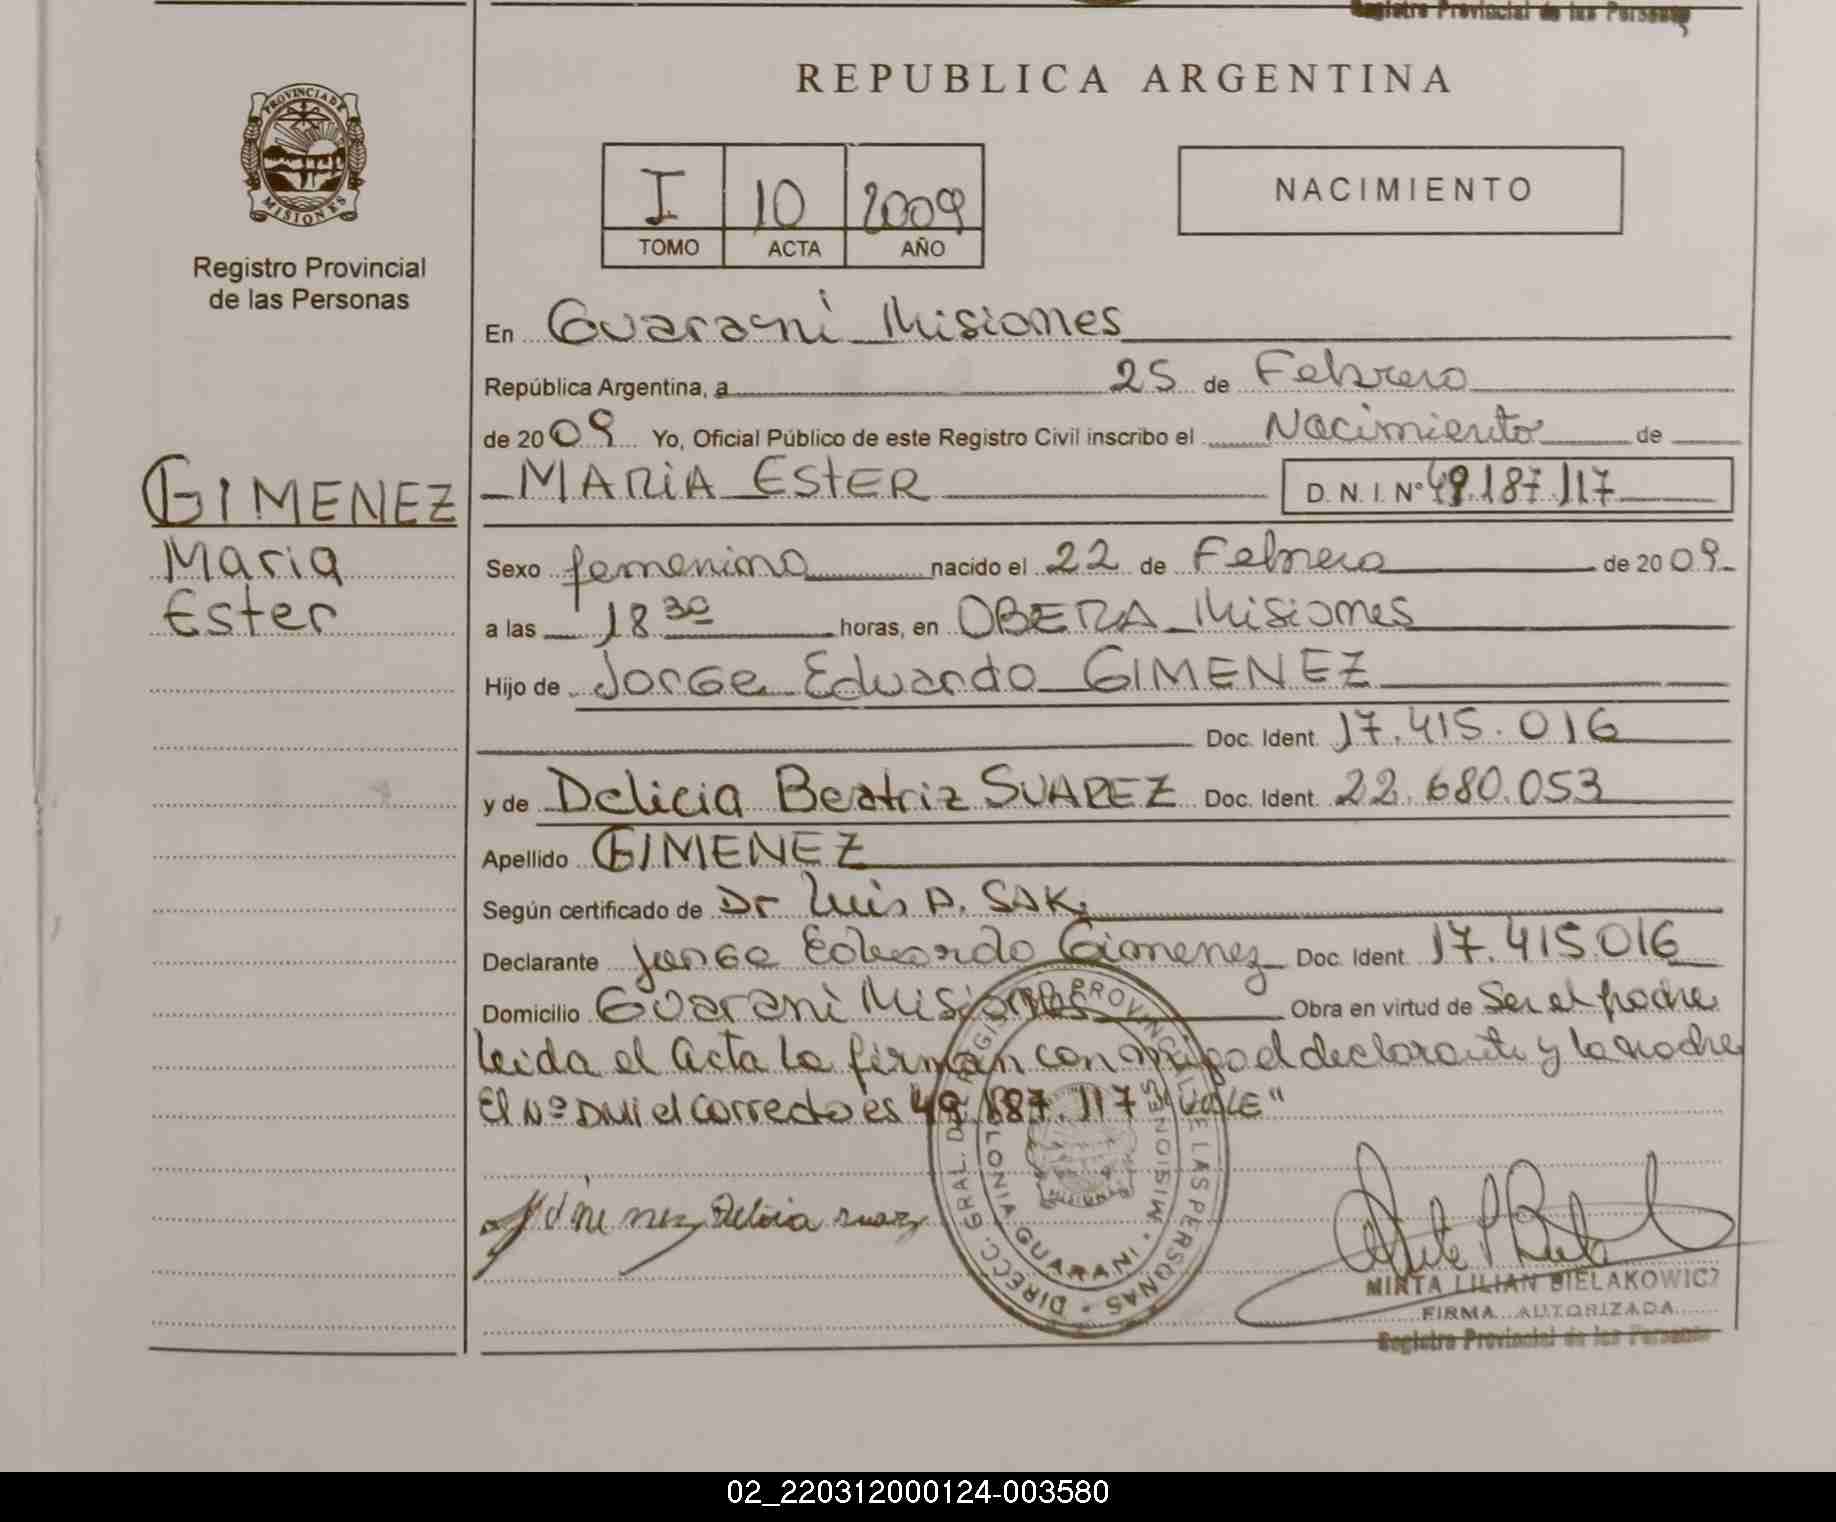 Registro Provincial de las Personas
REPUBLICA ARGENTINA
PROVINCIA DE
MISIONES
Registro Provincial
de las Personas
I 10 2009
TOMO ACTA AÑO
NACIMIENTO
En Guarani Misiones
República Argentina, a 25 de Febrero
de 2009 Yo, Oficial Público de este Registro Civil inscribo el Nacimiento de
MARIA ESTER D.N.I. Nº 49.187.117
GIMENEZ
Maria
Ester
Sexo femenino nacido el 22 de Febrero de 2009
a las 18 30 horas, en OBERA Misiones
Hijo de Jorge Eduardo GIMENEZ
Doc. Ident. 17.415.016
y de Delicia Beatriz SUAREZ Doc. Ident. 22.680.053
Apellido GIMENEZ
Según certificado de Dr Luis A. SAK
Declarante Jorge Eduardo Gimenez Doc. Ident. 17.415.016
Domicilio Guarani Misiones Obra en virtud de Ser el padre
leida el Acta la firman conmigo el declarante y la madre
El Nº DNI el correcto es 49.187.117 "VALE"
DIRECC. GRAL. DEL REGISTRO PROVINCIAL DE LAS PERSONAS
COLONIA GUARANI · MISIONES
Gimenez Delicia Suarez
MIRTA LILIAN BIELAKOWICZ
FIRMA AUTORIZADA
Registro Provincial de las Personas
02_220312000124-003580